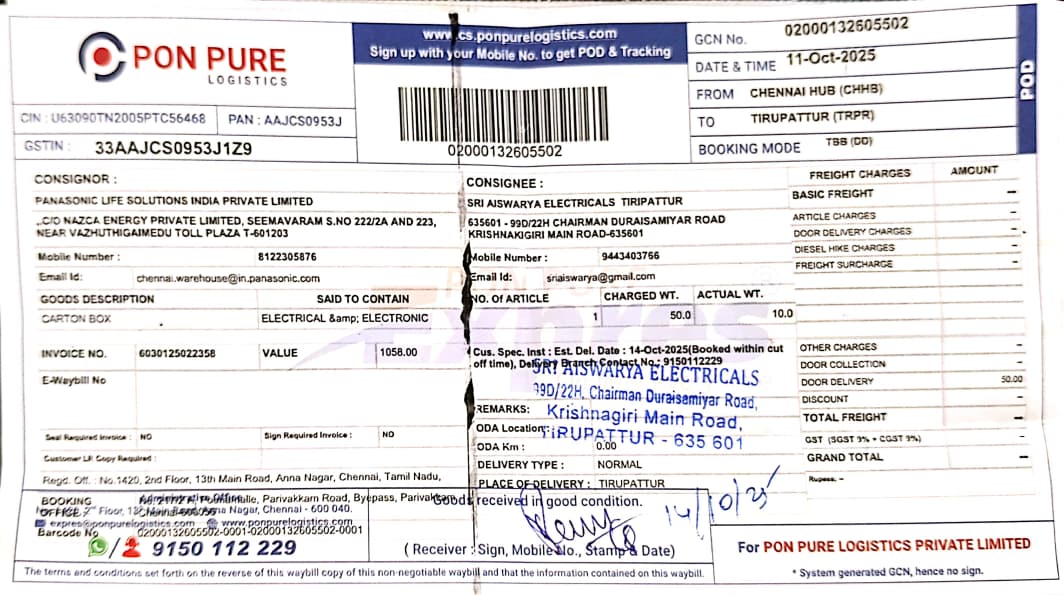 PON PURE
LOGISTICS
CIN : U63090TN2005PTC56468 PAN : AAJCS0953J
GSTIN : 33AAJCS0953J1Z9
www.cs.ponpurelogistics.com
Sign up with your Mobile No. to get POD & Tracking
02000132605502
GCN No. 02000132605502
DATE & TIME 11-Oct-2025
FROM CHENNAI HUB (CHHB)
TO TIRUPATTUR (TRPR)
BOOKING MODE TBB (DD)
POD
CONSIGNOR :
PANASONIC LIFE SOLUTIONS INDIA PRIVATE LIMITED
,,C/O NAZCA ENERGY PRIVATE LIMITED, SEEMAVARAM S.NO 222/2A AND 223,
NEAR VAZHUTHIGAIMEDU TOLL PLAZA T-601203
Mobile Number : 8122305876
Email Id: chennai.warehouse@in.panasonic.com
CONSIGNEE :
SRI AISWARYA ELECTRICALS TIRIPATTUR
635601 - 99D/22H CHAIRMAN DURAISAMIYAR ROAD
KRISHNAKIGIRI MAIN ROAD-635601
Mobile Number : 9443403766
Email Id: sriaiswarya@gmail.com
GOODS DESCRIPTION SAID TO CONTAIN NO. Of ARTICLE CHARGED WT. ACTUAL WT.
CARTON BOX ELECTRICAL &amp; ELECTRONIC 1 50.0 10.0
INVOICE NO. 6030125022358 VALUE 1058.00
E-Waybill No
Seal Required Invoice : NO Sign Required Invoice : NO
Customer LR Copy Required :
Cus. Spec. Inst : Est. Del. Date : 14-Oct-2025(Booked within cut
off time), Delivery Branch Contact No.: 9150112229
SRI AISWARYA ELECTRICALS
99D/22H, Chairman Duraisemiyar Road,
Krishnagiri Main Road,
TIRUPATTUR - 635 601
REMARKS:
ODA Location:
ODA Km : 0.00
DELIVERY TYPE : NORMAL
PLACE OF DELIVERY : TIRUPATTUR
FREIGHT CHARGES AMOUNT
BASIC FREIGHT –
ARTICLE CHARGES –
DOOR DELIVERY CHARGES –
DIESEL HIKE CHARGES –
FREIGHT SURCHARGE –
OTHER CHARGES –
DOOR COLLECTION –
DOOR DELIVERY 50.00
DISCOUNT –
TOTAL FREIGHT –
GST (SGST 9% + CGST 9%) –
GRAND TOTAL –
Rupees: –
Regd. Off. : No.1420, 2nd Floor, 13th Main Road, Anna Nagar, Chennai, Tamil Nadu,
BOOKING
OFFICE
Administrative Office
Poonamalle, Parivakkam Road, Byepass, Parivakkam
2nd Floor, 13th Main Road, Anna Nagar, Chennai - 600 040.
expres@ponpurelogistics.com www.ponpurelogistics.com
Barcode No 02000132605502-0001-02000132605502-0001
9150 112 229
Goods received in good condition.
14/10/25
( Receiver : Sign, Mobile No., Stamp & Date)
For PON PURE LOGISTICS PRIVATE LIMITED
* System generated GCN, hence no sign.
The terms and conditions set forth on the reverse of this waybill copy of this non-negotiable waybill and that the information contained on this waybill.